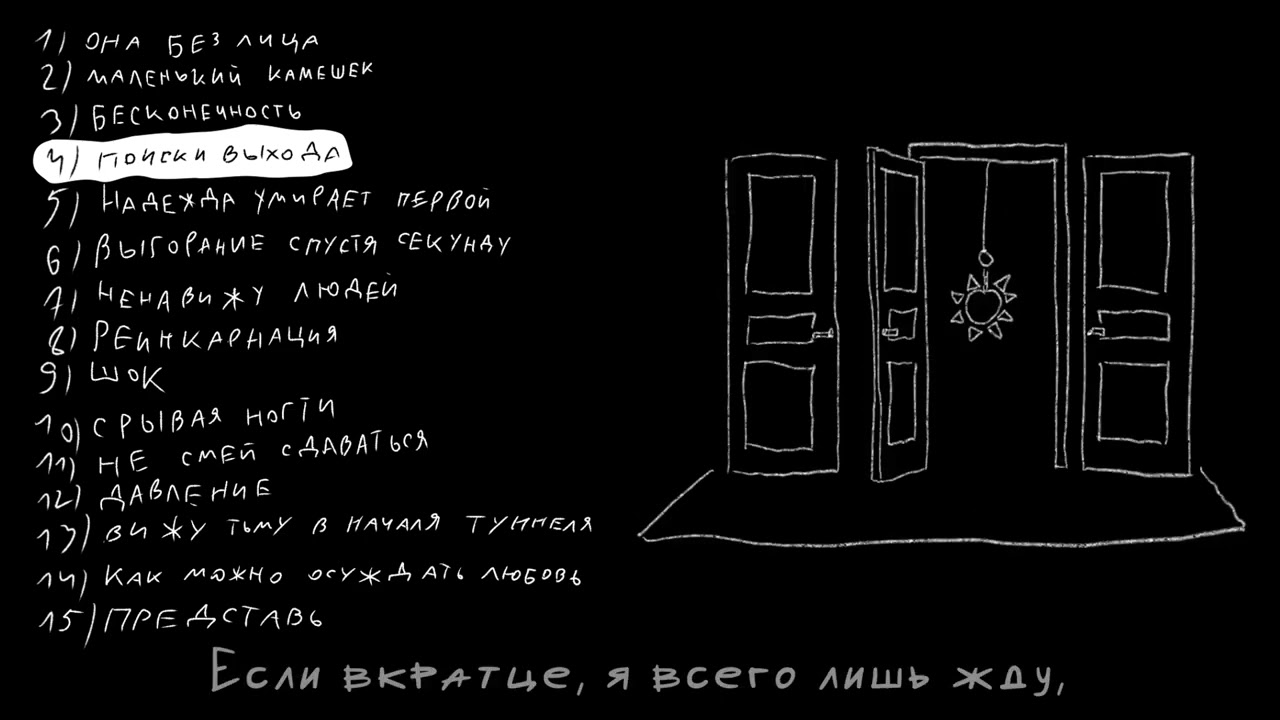 1) ОНА БЕЗ ЛИЦА
2) МАЛЕНЬКИЙ КАМЕШЕК
3) БЕСКОНЕЧНОСТЬ
4) ПОИСКИ ВЫХОДА
5) НАДЕЖДА УМИРАЕТ ПЕРВОЙ
6) ВЫГОРАНИЕ СПУСТЯ СЕКУНДУ
7) НЕНАВИЖУ ЛЮДЕЙ
8) РЕИНКАРНАЦИЯ
9) ШОК
10) СРЫВАЯ НОГТИ
11) НЕ СМЕЙ СДАВАТЬСЯ
12) ДАВЛЕНИЕ
13) ВИЖУ ТЬМУ В НАЧАЛЯ ТУННЕЛЯ
14) КАК МОЖНО ОСУЖДАТЬ ЛЮБОВЬ
15) ПРЕДСТАВЬ
Если вкратце, я всего лишь жду,